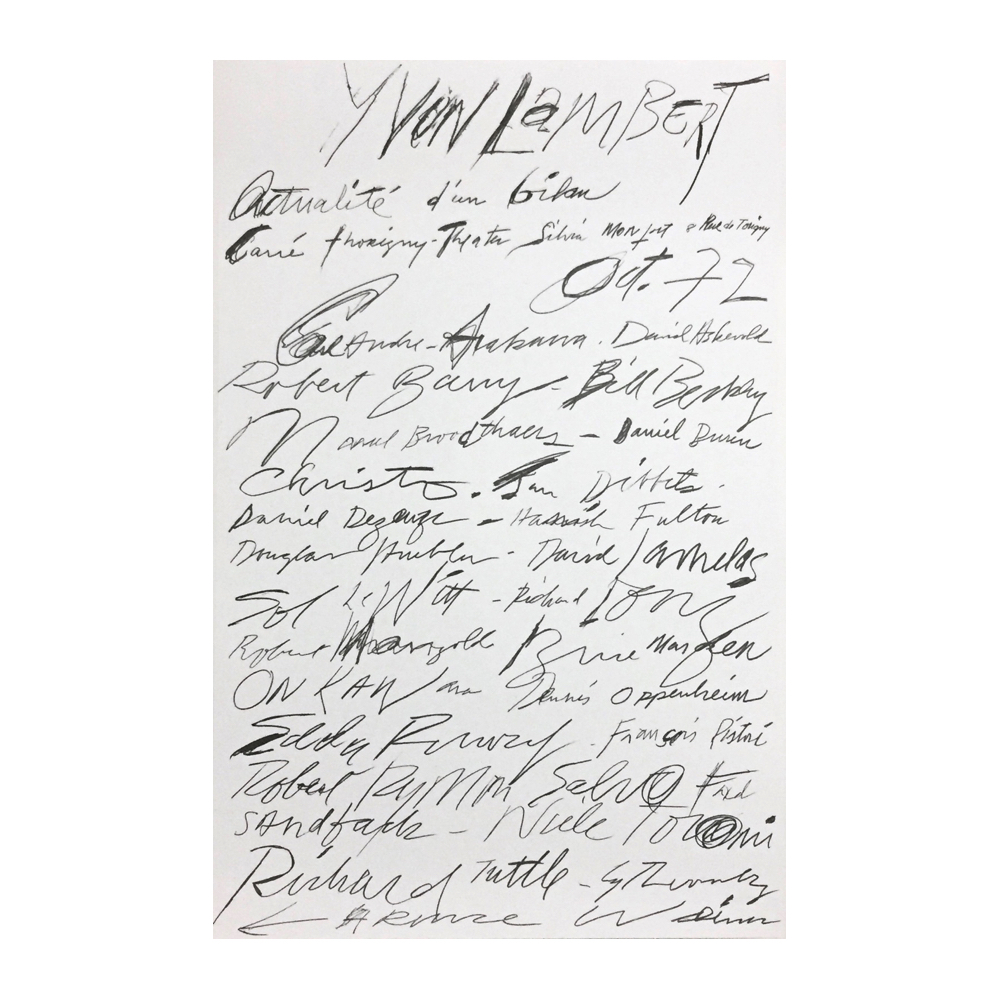 YVON LAMBERT
Actualité d'un bilan
Carré Thorigny - Theater Silvia Monfort 8 Rue de Torigny
Oct. 72
Carl Andre - Arakawa. David Askevold
Robert Barry - Bill Beckley
Marcel Broodthaers - Daniel Buren
Christo. Jan Dibbets.
Daniel Dezeuze - Hamish Fulton
Douglas Huebler - David Lamelas
Sol LeWitt - Richard Long
Robert Mangold Brice Marden
ON KAWara Dennis Oppenheim
Edda Renouf. François Ristori
Robert Ryman Salvo Fred
Sandback - Niele Toroni
Richard Tuttle - Cy Twombly
Lawrence Weiner